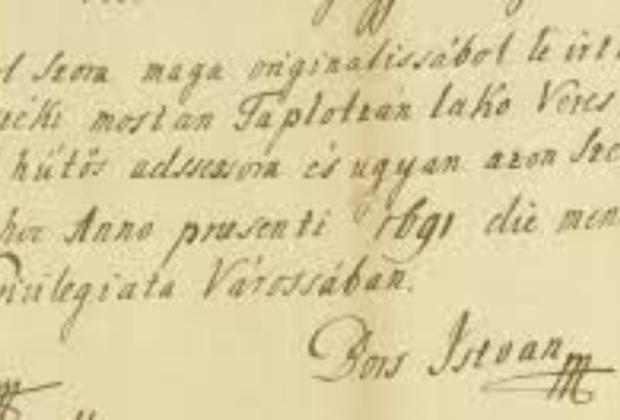 Szom maga originalissábol le irt
széki mostan Taplotzán lako Veres
hütös adssessom és ugyan azon Sze
hoc Anno præsenti 1691 die men
privilegiata Várossában.
Bors Istvan